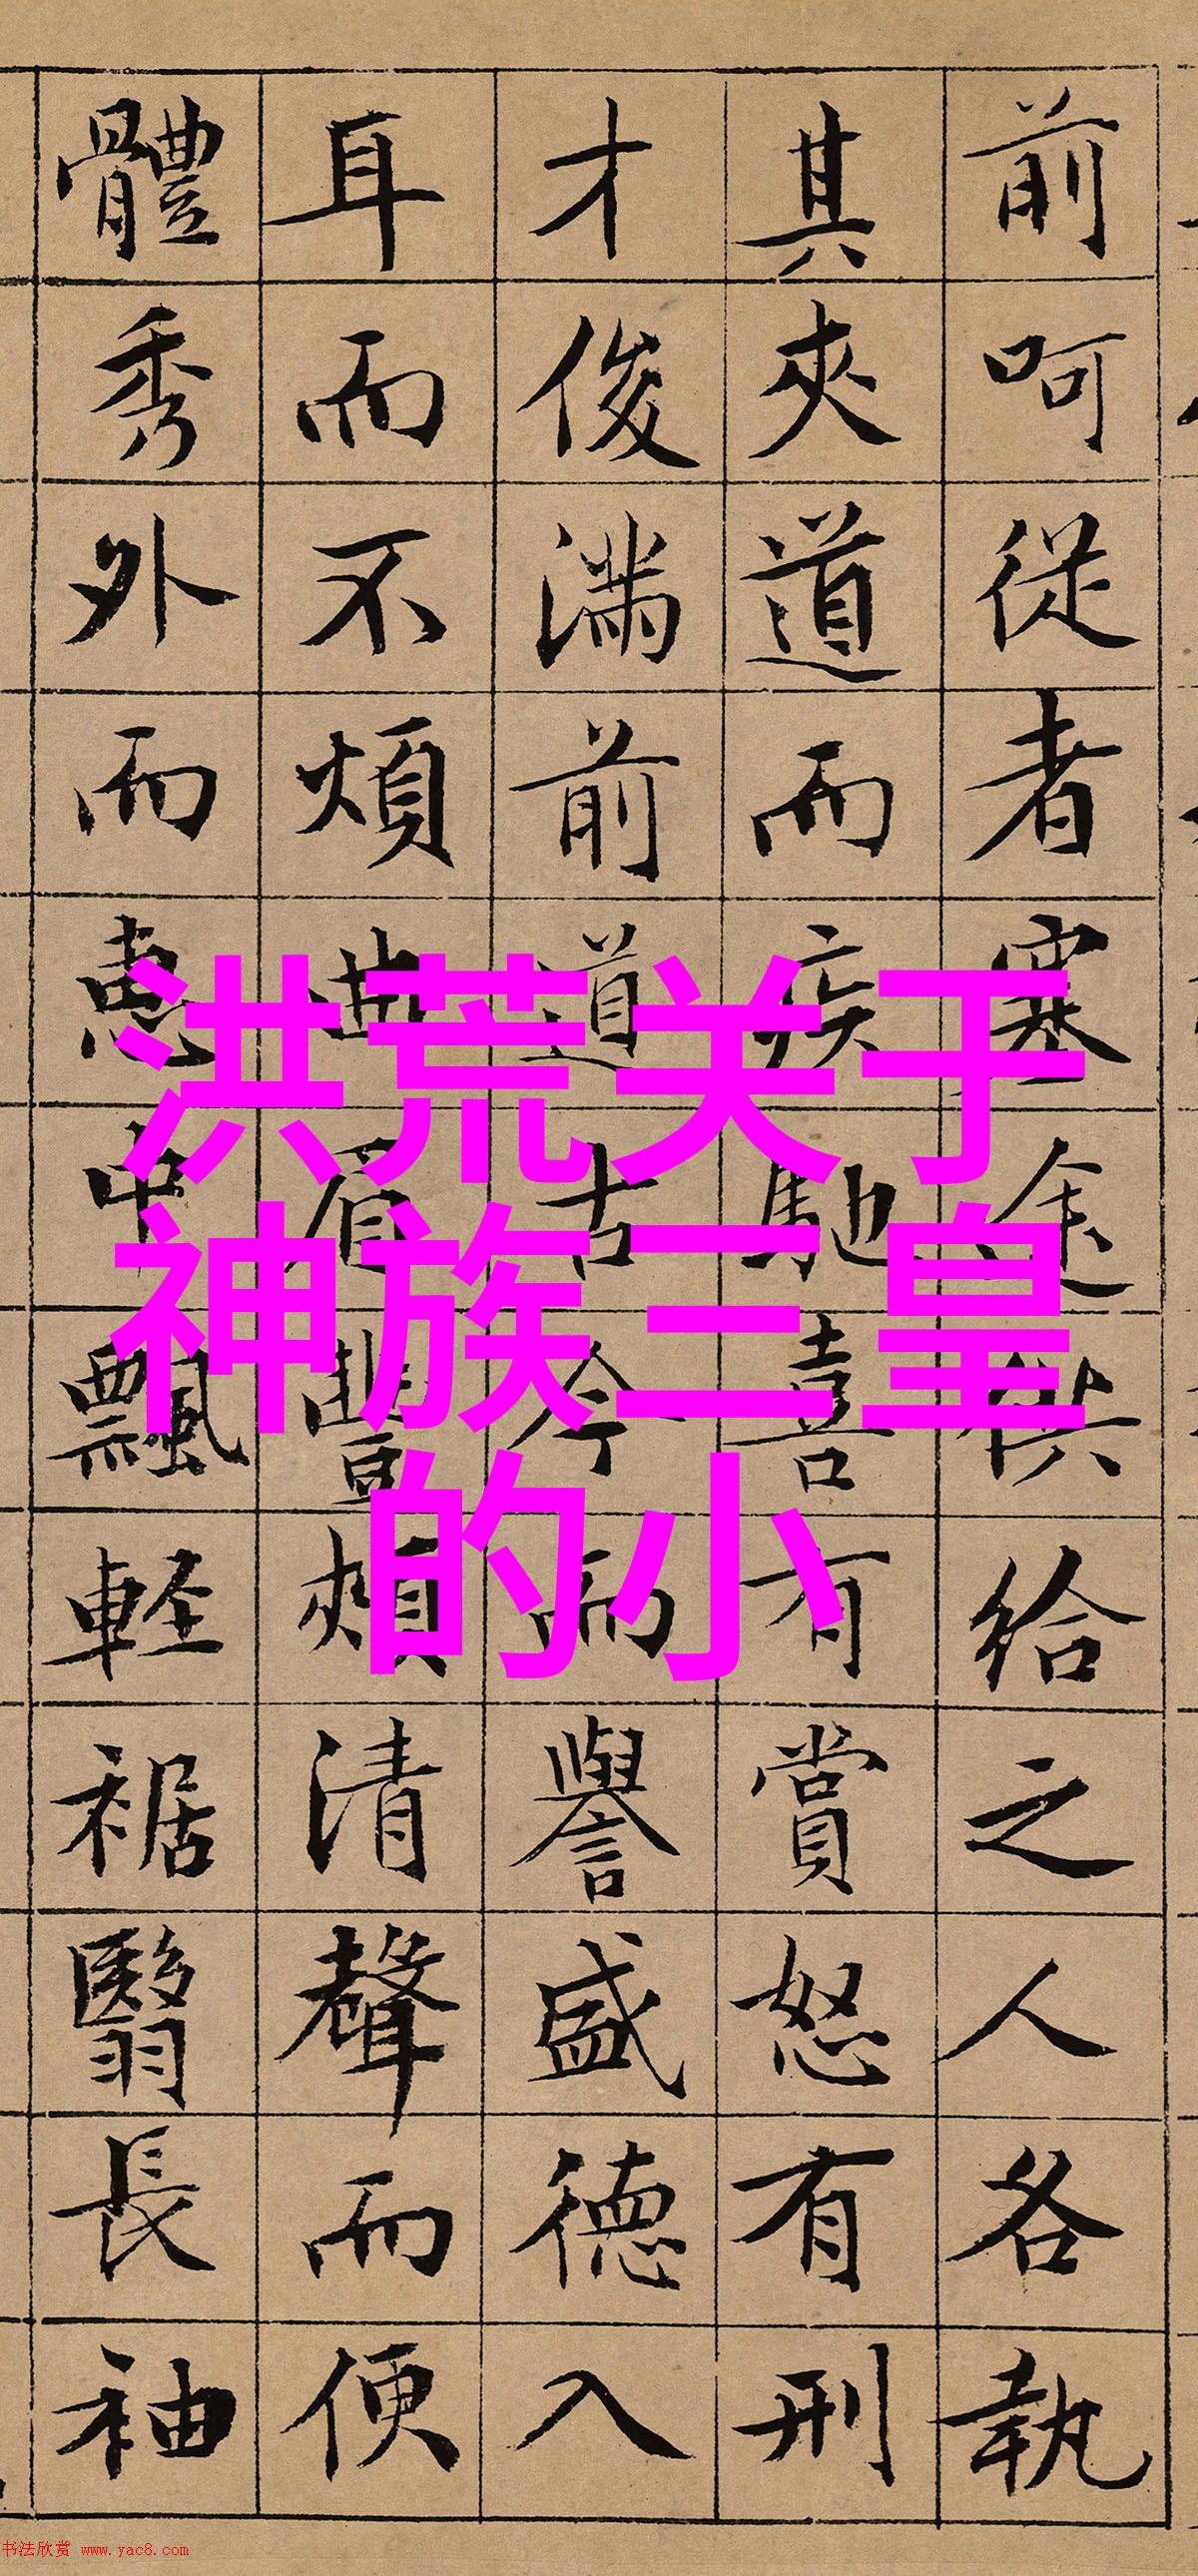 前呵從者塞途供給之人各執
其夾道而疾馳喜有賞怒有刑
才俊滿前道古今而譽盛德入
耳而不煩曲眉豐頰清聲而便
體秀外而惠中飄輕裾翳長袖
洪荒关于
神族三皇
的小
书法欣赏 www.yac8.com